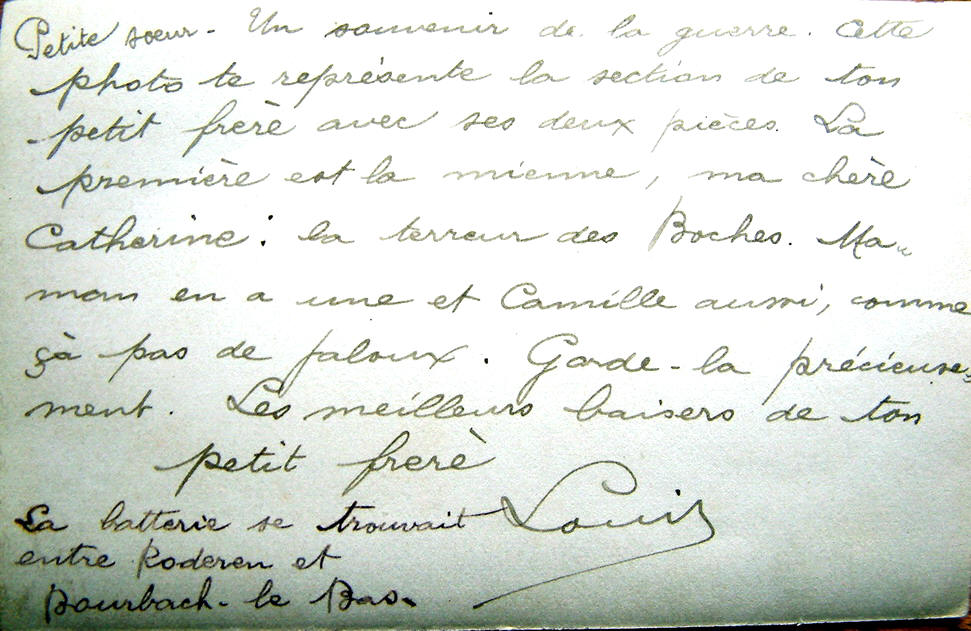 Petite sœur - Un souvenir de la guerre. Cette
photo te représente la section de ton
petit frère avec ses deux pièces. La
première est la mienne, ma chère
Catherine : la terreur des Boches. Ma-
man en a une et Camille aussi, comme
çà pas de jaloux. Garde-la précieuse-
ment. Les meilleurs baisers de ton
petit frère
Louis
La batterie se trouvait
entre Roderen et
Bourbach-le Bas.